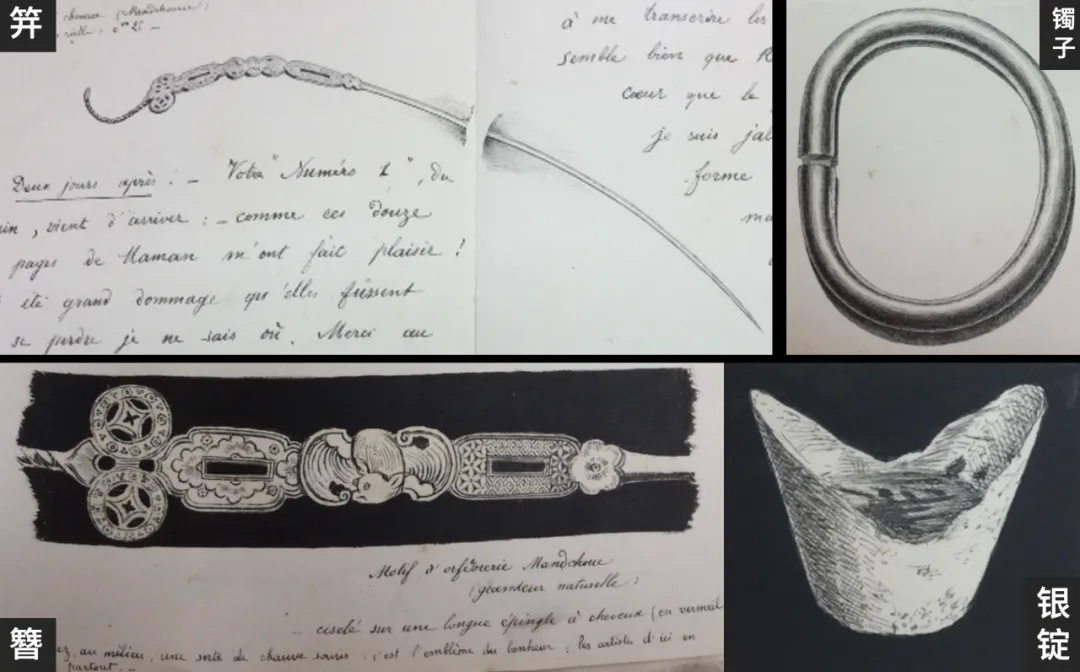 笄
cheveux (Mandchoue)
réelle : 0m 25 —
Deux jours après : — Votre "Numéro 1", du
in, vient d'arriver : — comme ces douze
pages de Maman m'ont fait plaisir !
été grand dommage qu'elles fussent
se perdre je ne sais où. Merci au
à me transcrire les
semble bien que R
cœur que le
je suis j'al
forme
镯子
簪
Motif d'orfèvrerie Mandchoue
(grandeur naturelle)
ciselé sur une longue épingle à cheveux (en vermeil
ez, au milieu, une sorte de chauve souris : c'est l'emblème du bonheur : les artistes d'ici en
partout. —
银锭